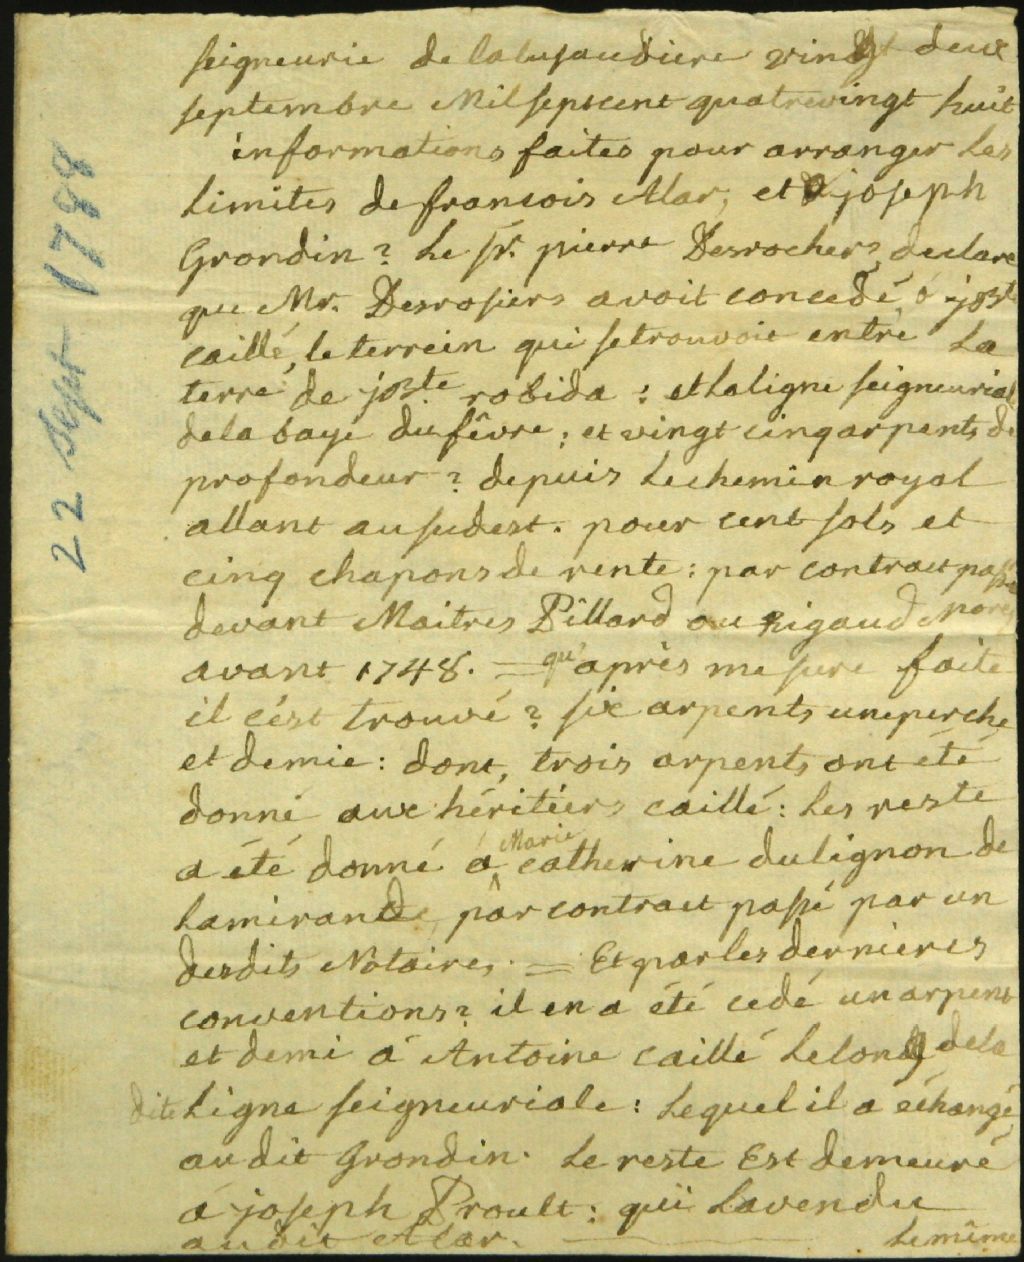 22 Sept 1788
seigneurie de lalusaudiere vingt deux
septembre Mil sept cent quatrevingt huit
informations faites pour arranger les
limites de francois Alar, et joseph
Grondin? Le sr. pierre Desrochers, declare
que Mr. Desrosiers avoit concedé á joste
caillé, le terrein qui se trouvoit entre La
terre de joste. robida : et la ligne seigneurial
de la baye du fêvre; et vingt cinq arpents de
profondeur ? depuis Le chemin royal
allant au sudest. pour cent sols et
cinq chapons de rente : par contract passé
devant Maitres Pillard ou Rigaud Nores
avant 1748. = qu'après mesure faite
il c'est trouvé ? six arpents une perche
et demie : dont, trois arpents ont été
donné aux héritiérs caillé : Les reste
a été donné á Marie catherine dulignon de
Lamirande, pár contract passé par un
desdits Notaires. = Et par les dernieres
conventions ? il en a été cedé un arpent
et demi á Antoine caillé Le long dela
dite Ligne seigneuriale : Lequel il a échangé
au dit Grondin. Le reste Est demeuré
á joseph Proult : qui La vendu
au dit Alar. — Le même